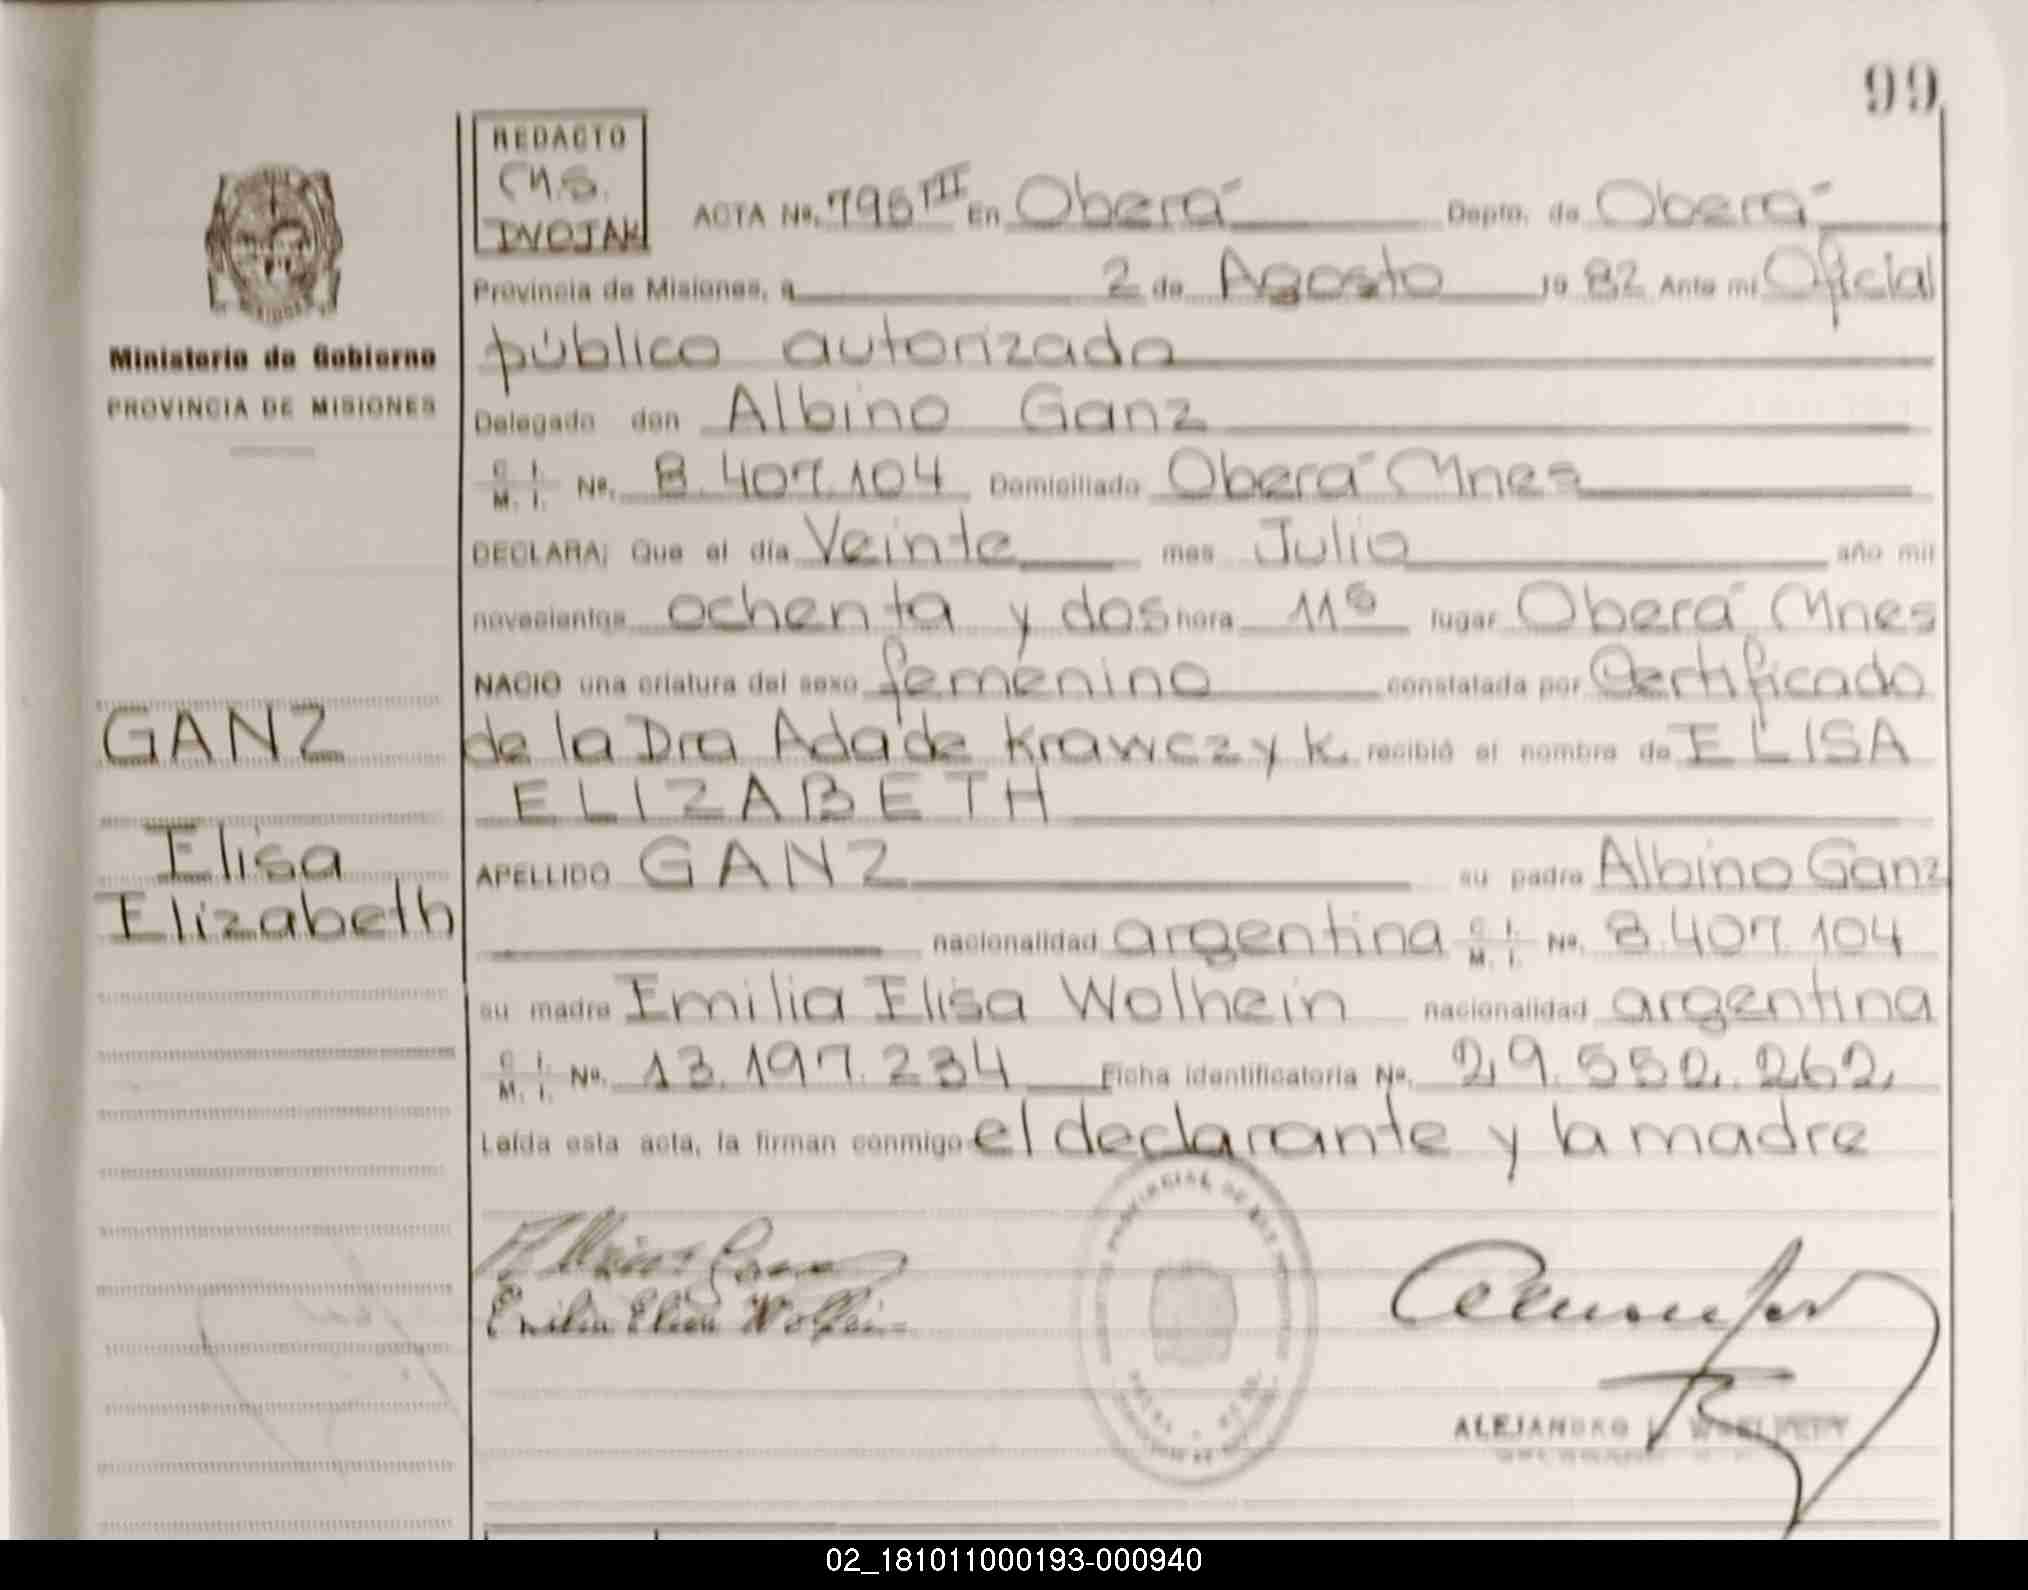 99
REDACTO
M.S.
DVOJAK
ACTA Nº. 795 III En Oberá Depto. de Oberá
Provincia de Misiones, a 2 de Agosto 19 82 Ante mi Oficial
público autorizado
Ministerio de Gobierno
PROVINCIA DE MISIONES
Delegado don Albino Ganz
C. I.
M. I. Nº. 8.407.104 Domiciliado Oberá Mnes
DECLARA: Que el día Veinte mes Julio año mil
novecientos ochenta y dos hora 11 lugar Oberá Mnes
NACIO una criatura del sexo femenino constatada por Certificado
GANZ
de la Dra Ada de Krawczyk. recibió el nombre de ELISA
ELIZABETH
Elisa
Elizabeth
APELLIDO GANZ su padre Albino Ganz
nacionalidad argentina C. I. M. I. Nº. 8.407.104
su madre Emilia Elisa Wolhein nacionalidad argentina
C. I.
M. I. Nº. 13.197.234 Ficha identificatoria Nº. 29.552.262
Leída esta acta, la firman conmigo el declarante y la madre
Emilia Elisa Wolhein
ALEJANDRO
02_181011000193-000940